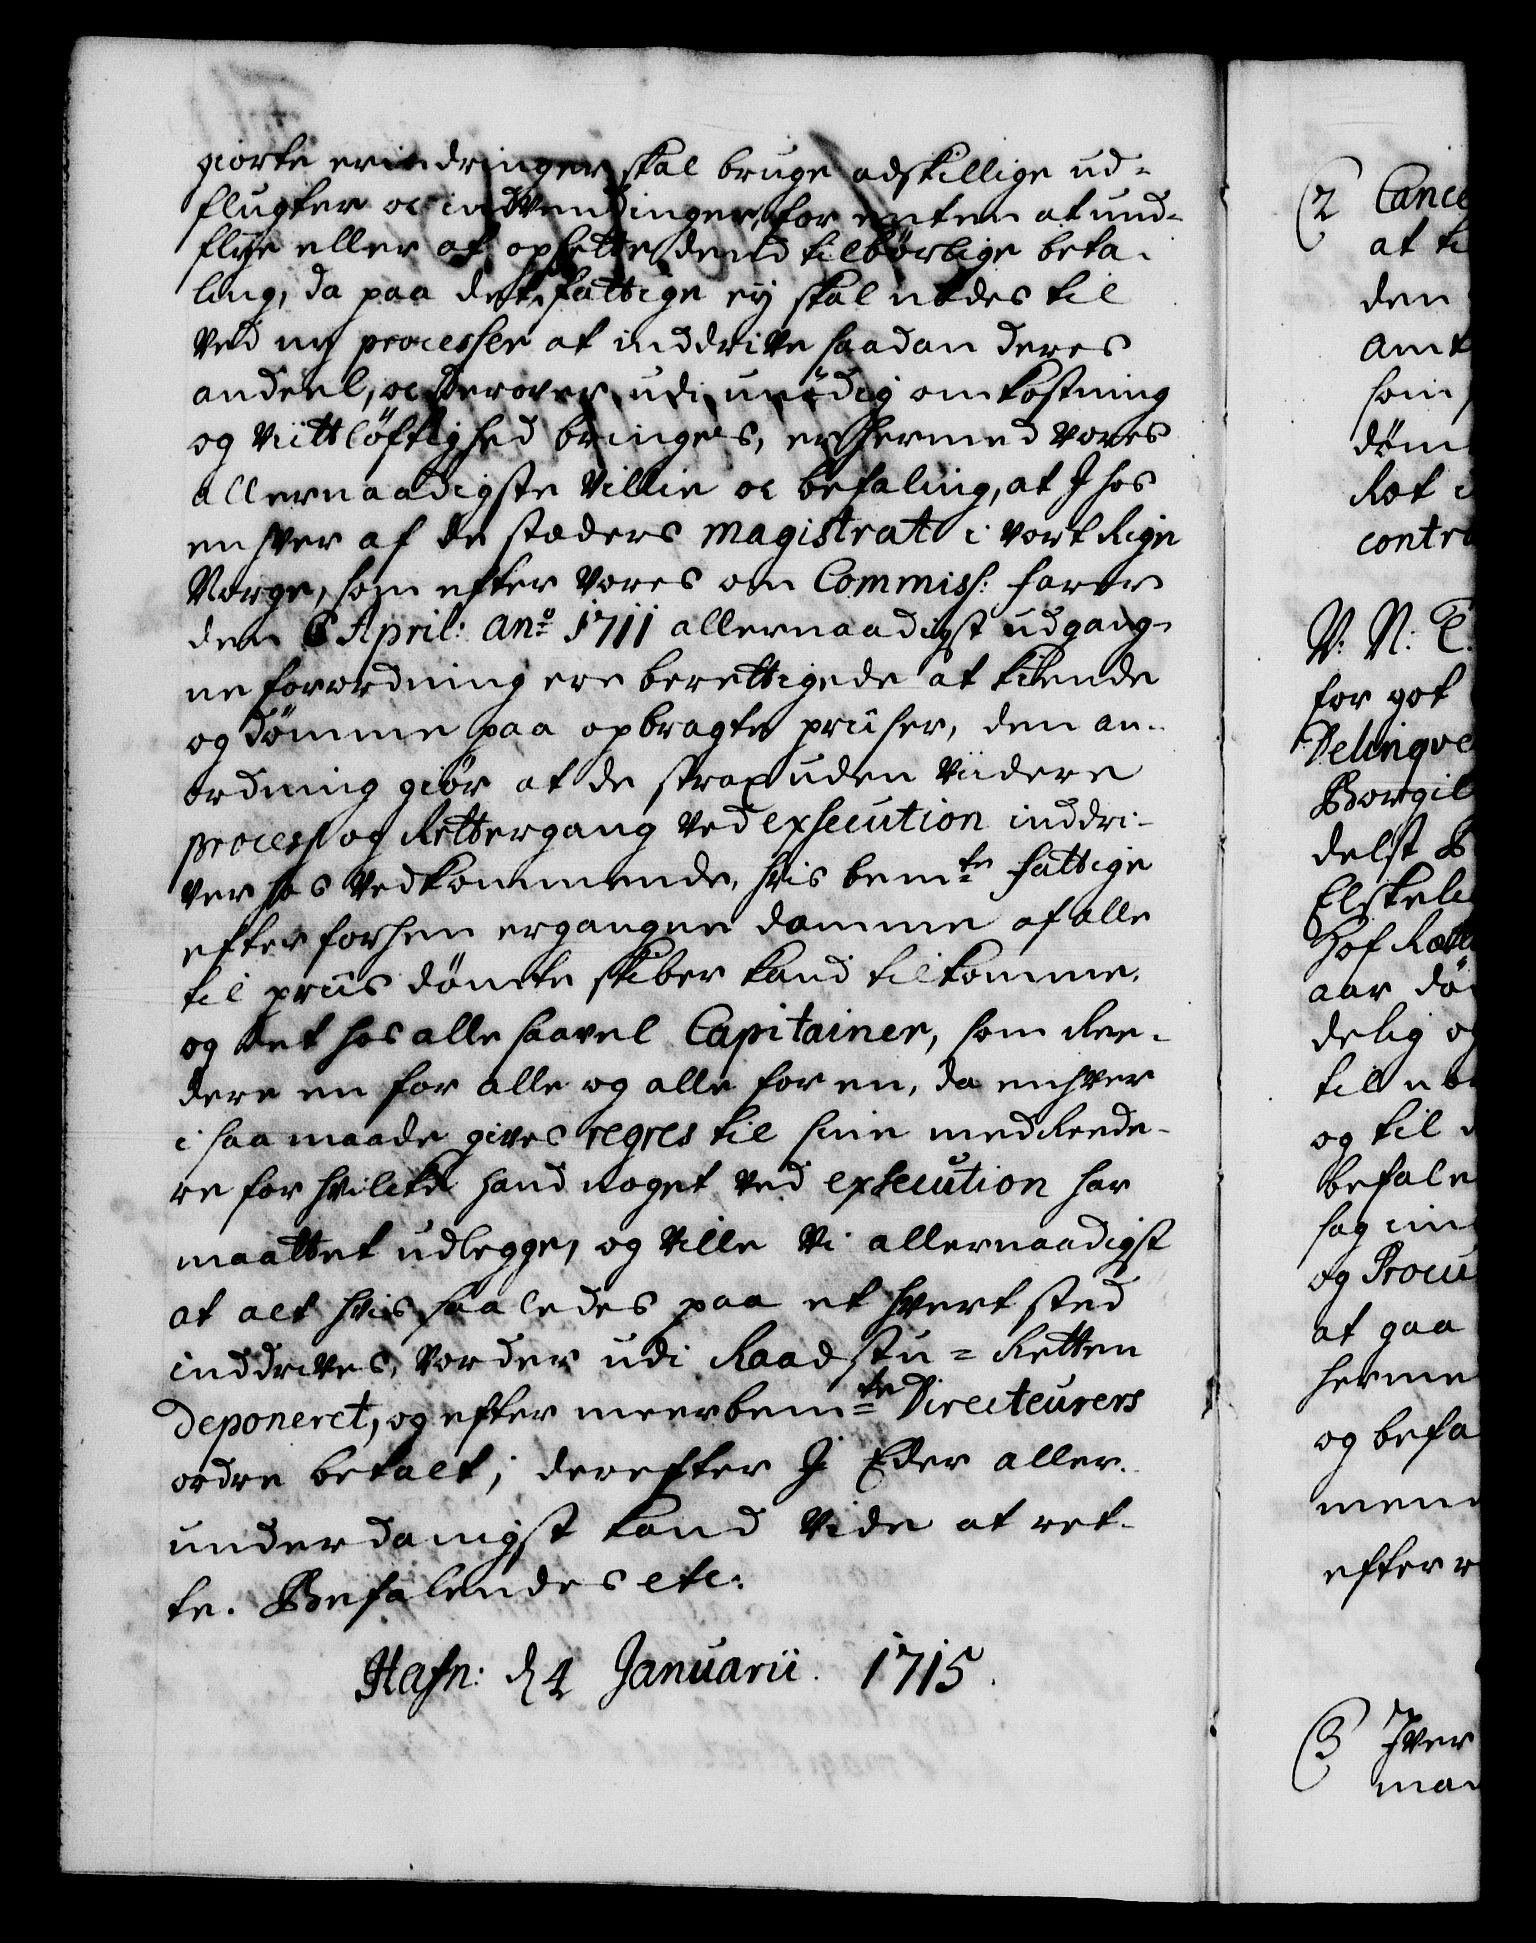 giorte erindringer skal bruge adskillige ud-
flugter oc indvendinger, for enten at und-
flye eller at opsette dend tilbørlige beta-
ling, da paa det, fattige ey skal nødes til
ved ny processer at inddrive saadan deres
andeel, oc derover udi unødig omkostning
og viitløftighed bringes, er hermed vores
allernaadigste villie oc befaling, at I hos
enhver af de stæders magistrat i vort Rige
Norge, som efter vores om Commiss: farer
den 6 April: Ano 1711 allernaadigst udgang-
ne forordning ere berettigede at kiende
og dømme paa opbragte priiser, den an-
ordning giør at de strax uden viidere
process og Rettergang ved execution inddri-
ver hos vedkommende, hvis bemte fattige
efter forhen ergangne domme af alle
til priis dømte skiber kand tilkomme,
og det hos alle saavel Capitainer, som Ree-
dere en for alle og alle for en, da enhver
i saa maade gives regres til sine medReede-
re for hvilcke hand noget ved execution har
maattet udlegge, og ville Vi allernaadigst
at alt hvis saaledes paa et hvert sted
inddrives, vorder udi Raadstu-Retten
deponeret, og efter meerbemte Directeurers
ordre betalt; derefter I Eder aller-
underdanigst kand vide at ret-
te. Befalendes etc:
Hafn: d 4 Januarii 1715.
(2 Cance
at ti
den
Amt
som
døm
Ret
contra
V. N. T.
for got
Delinqve
Borgil
delst B
Elskeli
Hof Rett
aar dø
delig og
til
og til
befale
sag
og Procu
at gaa
herme
og befa
men
efter
(3 Iver
man